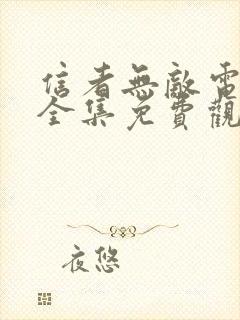 信者無敵電
全集免費觀
夜悠